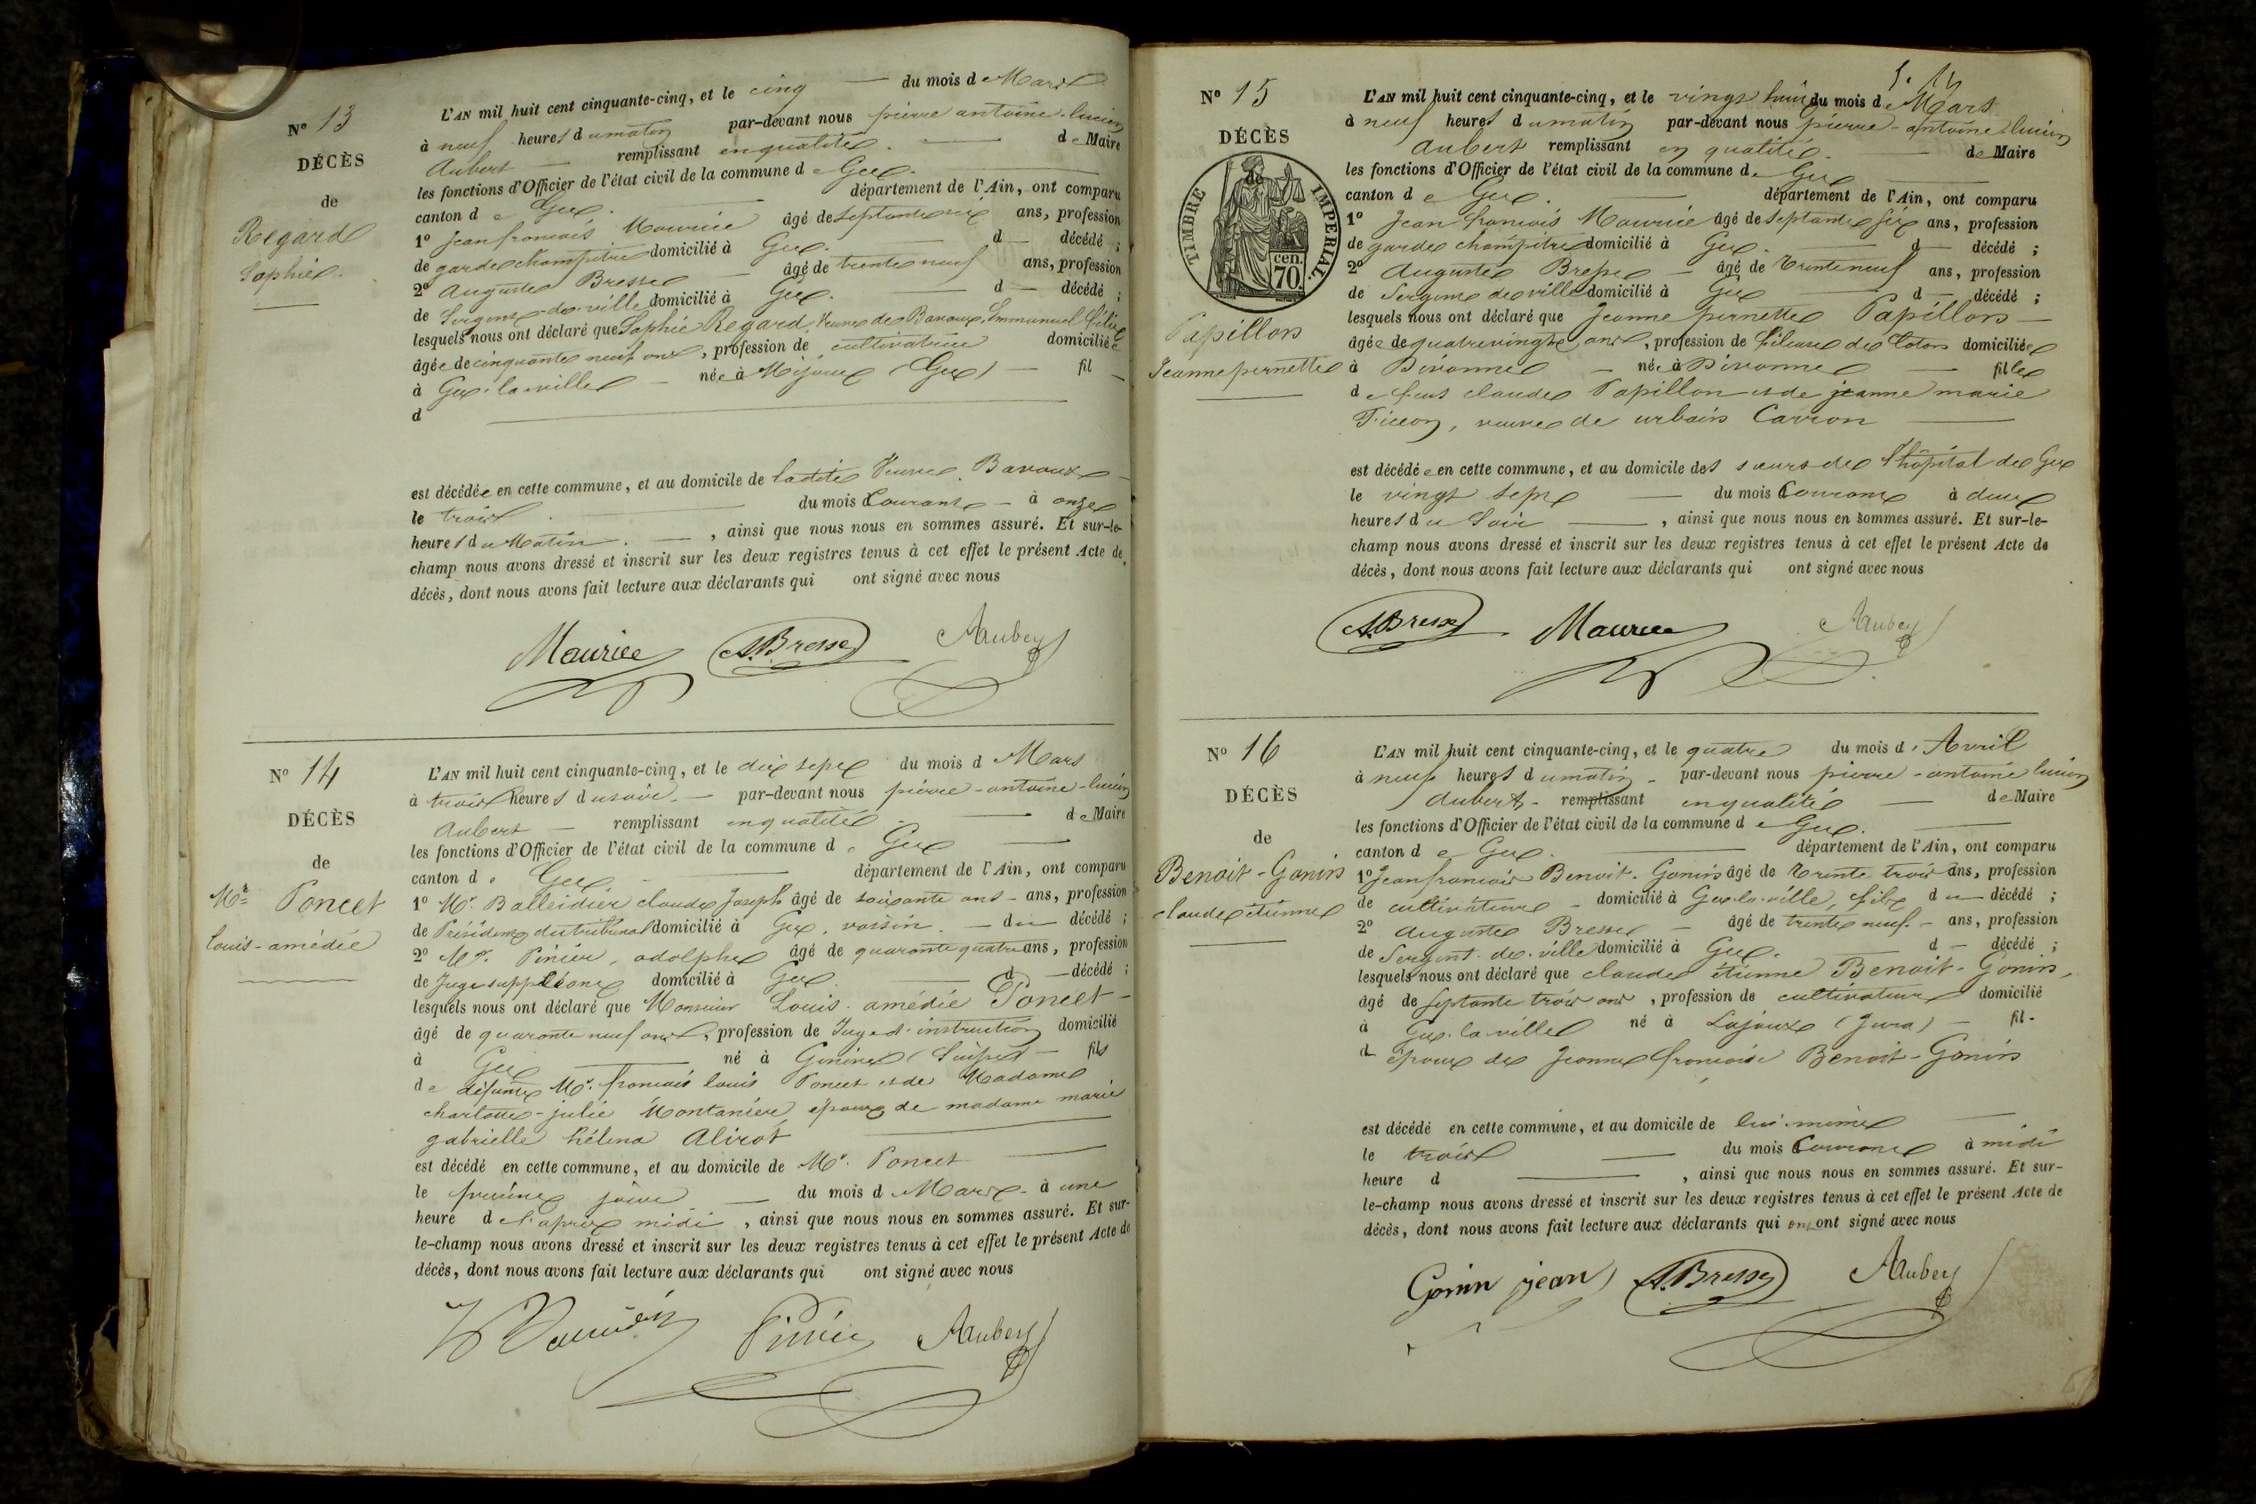 Nº 13
DÉCÈS
de
Regard
Sophie.
L'AN mil huit cent cinquante-cinq, et le cinq du mois de Mars
à neuf heures du matin par-devant nous pierre antoine-lucien
Aubert remplissant en qualité de Maire
les fonctions d'Officier de l'état civil de la commune de Gex.
canton de Gex. département de l'Ain, ont comparu
1º Jean françois Maurice âgé de septante six ans, profession
de garde champêtre domicilié à Gex. d décédé ;
2º Auguste Bresse âgé de trente neuf ans, profession
de Sergent de ville domicilié à Gex. d décédé ;
lesquels nous ont déclaré que Sophie Regard, Veuve de Bavoux, Emmanuel félix
âgée de cinquante neuf ans, profession de cultivatrice domiciliée
à Gex-la-ville née à Mijoux (Gex) fil
d
est décédée en cette commune, et au domicile de ladite Veuve Bavoux
le trois du mois Courant à onze
heures du Matin. , ainsi que nous nous en sommes assuré. Et sur-le-
champ nous avons dressé et inscrit sur les deux registres tenus à cet effet le présent Acte de
décès, dont nous avons fait lecture aux déclarants qui ont signé avec nous
Maurice A.Bresse Aubert
Nº 14
DÉCÈS
de
Mr Poncet
Louis-amédée
L'AN mil huit cent cinquante-cinq, et le dix sept du mois d Mars
à trois heures du soir. par-devant nous pierre-antoine-lucien
Aubert remplissant en qualité de Maire
les fonctions d'Officier de l'état civil de la commune de Gex
canton de Gex département de l'Ain, ont comparu
1º Mr. Balleidier claude Joseph âgé de soixante ans ans, profession
de Président du tribunal domicilié à Gex, voisin. du décédé ;
2º Mr. Pinier, adolphe âgé de quarante quatre ans, profession
de Juge suppléant domicilié à Gex d décédé ;
lesquels nous ont déclaré que Monsieur Louis-amédée Poncet
âgé de quarante neuf ans, profession de Juge d'instruction domicilié
à Gex né à Genève (Suisse) fils
de défunt Mr. françois louis Poncet et de Madame
charlotte-julie Montanier, époux de madame marie
gabrielle héléna Alirot
est décédé en cette commune, et au domicile de Mr. Poncet
le jour du mois de Mars à une
heure de l'après midi, ainsi que nous nous en sommes assuré. Et sur-
le-champ nous avons dressé et inscrit sur les deux registres tenus à cet effet le présent Acte de
décès, dont nous avons fait lecture aux déclarants qui ont signé avec nous
Pinier Aubert
Nº 15
DÉCÈS
de
TIMBRE IMPERIAL.
70 cen.
Papillon
Jeanne pernette
L'AN mil huit cent cinquante-cinq, et le vingt huit du mois de Mars
à neuf heures du matin par-devant nous pierre-antoine lucien
Aubert remplissant en qualité de Maire
les fonctions d'Officier de l'état civil de la commune de Gex
canton de Gex. département de l'Ain, ont comparu
1º Jean françois Maurice âgé de septante six ans, profession
de garde champêtre domicilié à Gex. d décédé ;
2º Auguste Bresse âgé de trente neuf ans, profession
de Sergent de ville domicilié à Gex d décédé ;
lesquels nous ont déclaré que Jeanne pernette Papillon
âgée de quatre vingts ans, profession de fileuse de Coton domiciliée
à Divonne née à Divonne fille
de feus claude Papillon et de jeanne marie
veuve de urbain Carron
est décédée en cette commune, et au domicile des sœurs de l'hôpital de Gex
le vingt sept du mois Courant à deux
heures du Soir , ainsi que nous nous en sommes assuré. Et sur-le-
champ nous avons dressé et inscrit sur les deux registres tenus à cet effet le présent Acte de
décès, dont nous avons fait lecture aux déclarants qui ont signé avec nous
A.Bresse Maurice Aubert
Nº 16
DÉCÈS
de
Benoit-Gonin
claude étienne
L'AN mil huit cent cinquante-cinq, et le quatre du mois d'Avril
à neuf heures du matin par-devant nous pierre-antoine lucien
Aubert remplissant en qualité de Maire
les fonctions d'Officier de l'état civil de la commune de Gex.
canton de Gex. département de l'Ain, ont comparu
1º Jean françois Benoit-Gonin âgé de trente trois ans, profession
de cultivateur domicilié à Gex-la-ville, fils du décédé ;
2º Auguste Bresse âgé de trente neuf ans, profession
de Sergent de ville domicilié à Gex. d décédé ;
lesquels nous ont déclaré que claude étienne Benoit-Gonin,
âgé de septante trois ans, profession de cultivateur domicilié
à Gex-la-ville né à Lajoux (Jura) fil
d époux de Jeanne françoise Benoit-Gonin
est décédé en cette commune, et au domicile de lui-même
le trois du mois Courant à midi
heure d , ainsi que nous nous en sommes assuré. Et sur-
le-champ nous avons dressé et inscrit sur les deux registres tenus à cet effet le présent Acte de
décès, dont nous avons fait lecture aux déclarants qui ont ont signé avec nous
Gonin jean A.Bresse Aubert